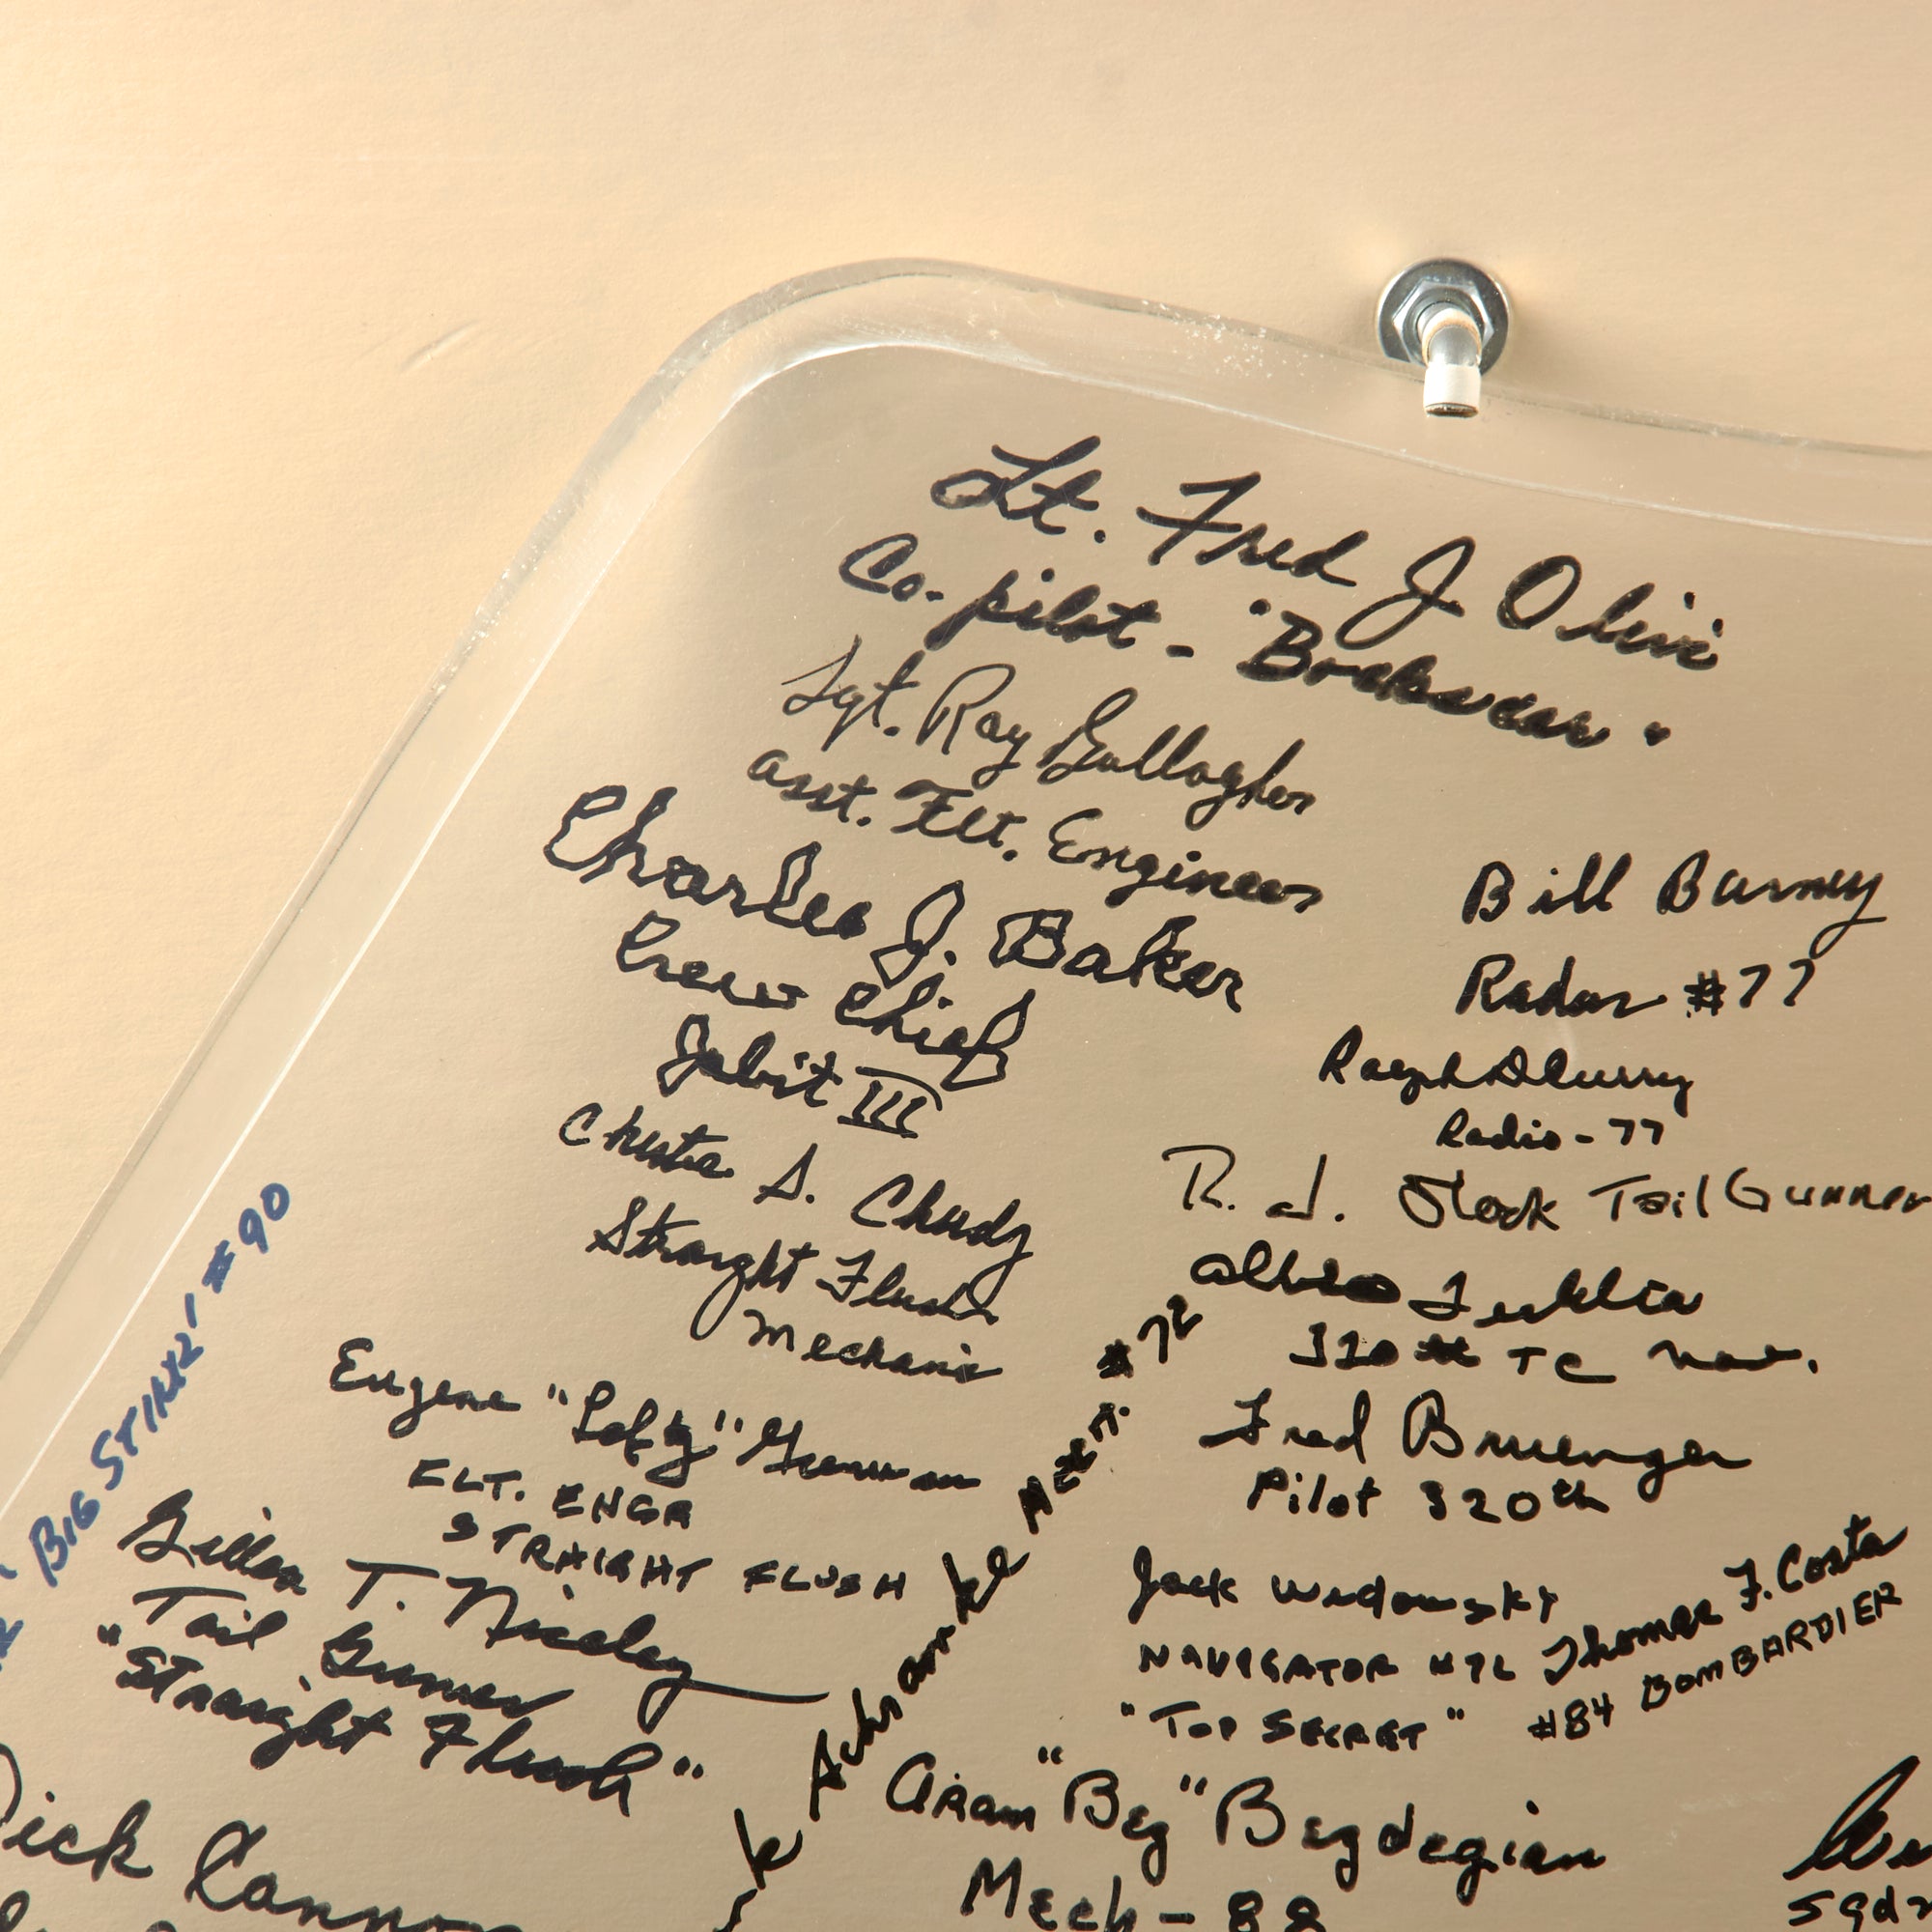 Lt. Fred J Olivi
Co-pilot - "Bockscar"
Sgt. Ray Gallagher
Asst. Flt. Engineer
Charles J. Baker
Crew Chief
Jabit III
Chester S. Chudy
Straight Flush
Mechanic
Eugene "Lefty" Grennan
FLT. ENGR
STRAIGHT FLUSH
T. Niceley
Tail Gunner
"Straight Flush"
Dick Cannon
BIG STINK' #90
Bill Barney
Radar #77
Ralph D Curry
Radio - 77
R. J. Stock Tail Gunner
320th TC Nav.
Fred Bruenger
Pilot 320th
Jack Widowsky
NAVIGATOR #72
"TOP SECRET"
Thomas F. Costa
#84 BOMBARDIER
#72
Aram "Beg" Begdegian
Mech - 88